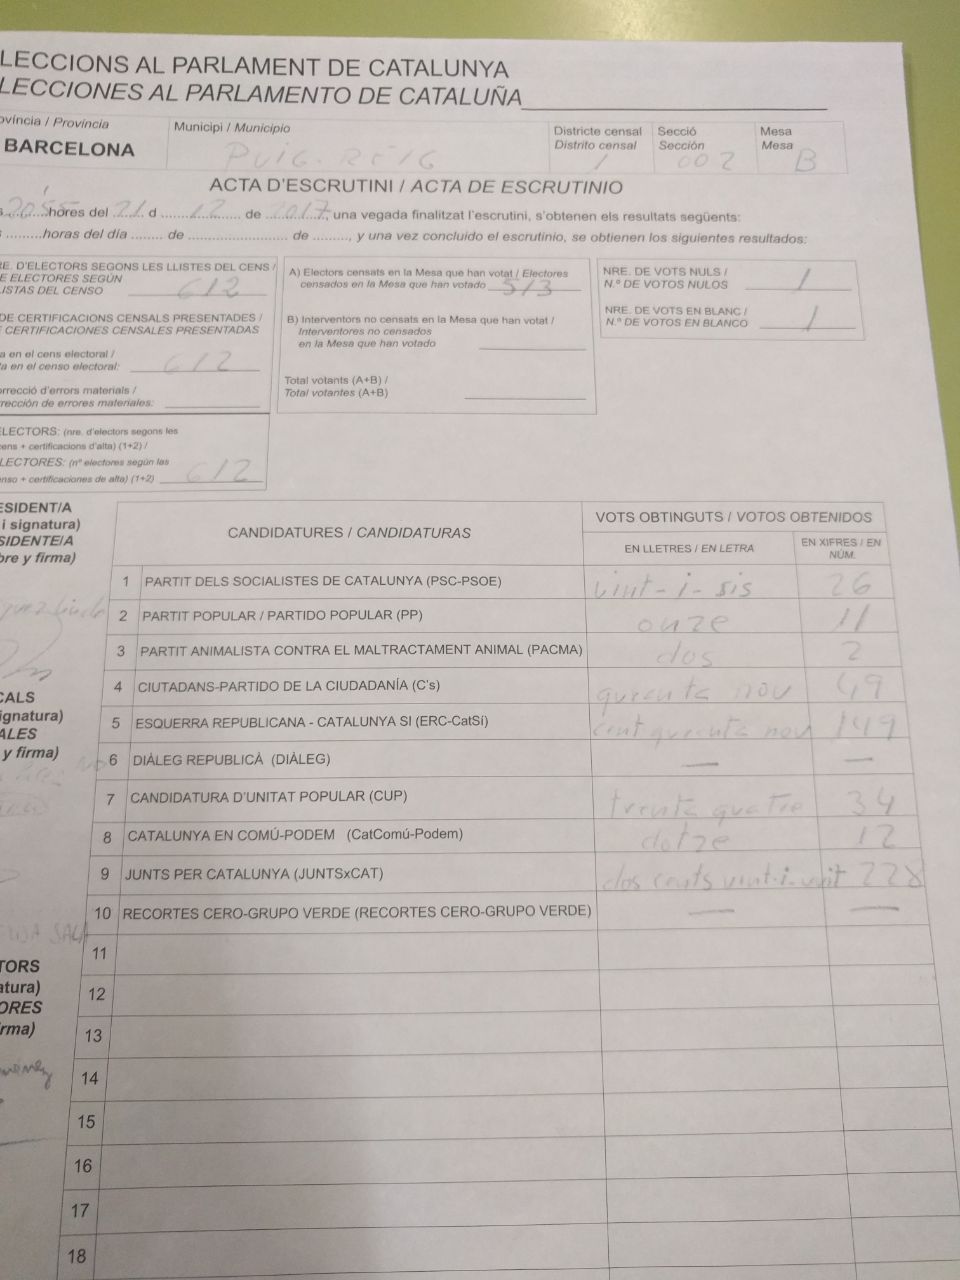 LECCIONS AL PARLAMENT DE CATALUNYA
LECCIONES AL PARLAMENTO DE CATALUÑA
ovíncia / Provincia
BARCELONA
Municipi / Municipio
PUIG-REIG
Districte censal
Distrito censal
1
Secció
Sección
002
Mesa
Mesa
B
ACTA D'ESCRUTINI / ACTA DE ESCRUTINIO
s 20'55 hores del 21 d 12 de 2017, una vegada finalitzat l'escrutini, s'obtenen els resultats següents:
s .........horas del día ........ de ........................ de ........., y una vez concluido el escrutinio, se obtienen los siguientes resultados:
RE. D'ELECTORS SEGONS LES LLISTES DEL CENS /
E ELECTORES SEGÚN
ISTAS DEL CENSO 612
DE CERTIFICACIONS CENSALS PRESENTADES /
E CERTIFICACIONES CENSALES PRESENTADAS
a en el cens electoral /
ta en el censo electoral: 612
orrecció d'errors materials /
rrección de errores materiales:
LECTORS: (nre. d'electors segons les
cens + certificacions d'alta) (1+2) /
LECTORES: (nº electores según las
enso + certificaciones de alta) (1+2) 612
A) Electors censats en la Mesa que han votat / Electores
censados en la Mesa que han votado 513
B) Interventors no censats en la Mesa que han votat /
Interventores no censados
en la Mesa que han votado
Total votants (A+B) /
Total votantes (A+B)
NRE. DE VOTS NULS /
N.º DE VOTOS NULOS 1
NRE. DE VOTS EN BLANC /
N.º DE VOTOS EN BLANCO 1
ESIDENT/A
i signatura)
SIDENTE/A
bre y firma)
CALS
ignatura)
ALES
y firma)
TORS
atura)
ORES
rma)
CANDIDATURES / CANDIDATURAS
VOTS OBTINGUTS / VOTOS OBTENIDOS
EN LLETRES / EN LETRA
EN XIFRES / EN
NÚM.
1 PARTIT DELS SOCIALISTES DE CATALUNYA (PSC-PSOE) vint-i-sis 26
2 PARTIT POPULAR / PARTIDO POPULAR (PP) onze 11
3 PARTIT ANIMALISTA CONTRA EL MALTRACTAMENT ANIMAL (PACMA) dos 2
4 CIUTADANS-PARTIDO DE LA CIUDADANÍA (C's) quranta nou 49
5 ESQUERRA REPUBLICANA - CATALUNYA SI (ERC-CatSí) cent quranta nou 149
6 DIÀLEG REPUBLICÀ (DIÀLEG) — —
7 CANDIDATURA D'UNITAT POPULAR (CUP) trenta quatre 34
8 CATALUNYA EN COMÚ-PODEM (CatComú-Podem) dotze 12
9 JUNTS PER CATALUNYA (JUNTSxCAT) dos cents vint-i-vuit 228
10 RECORTES CERO-GRUPO VERDE (RECORTES CERO-GRUPO VERDE) — —
11
12
13
14
15
16
17
18